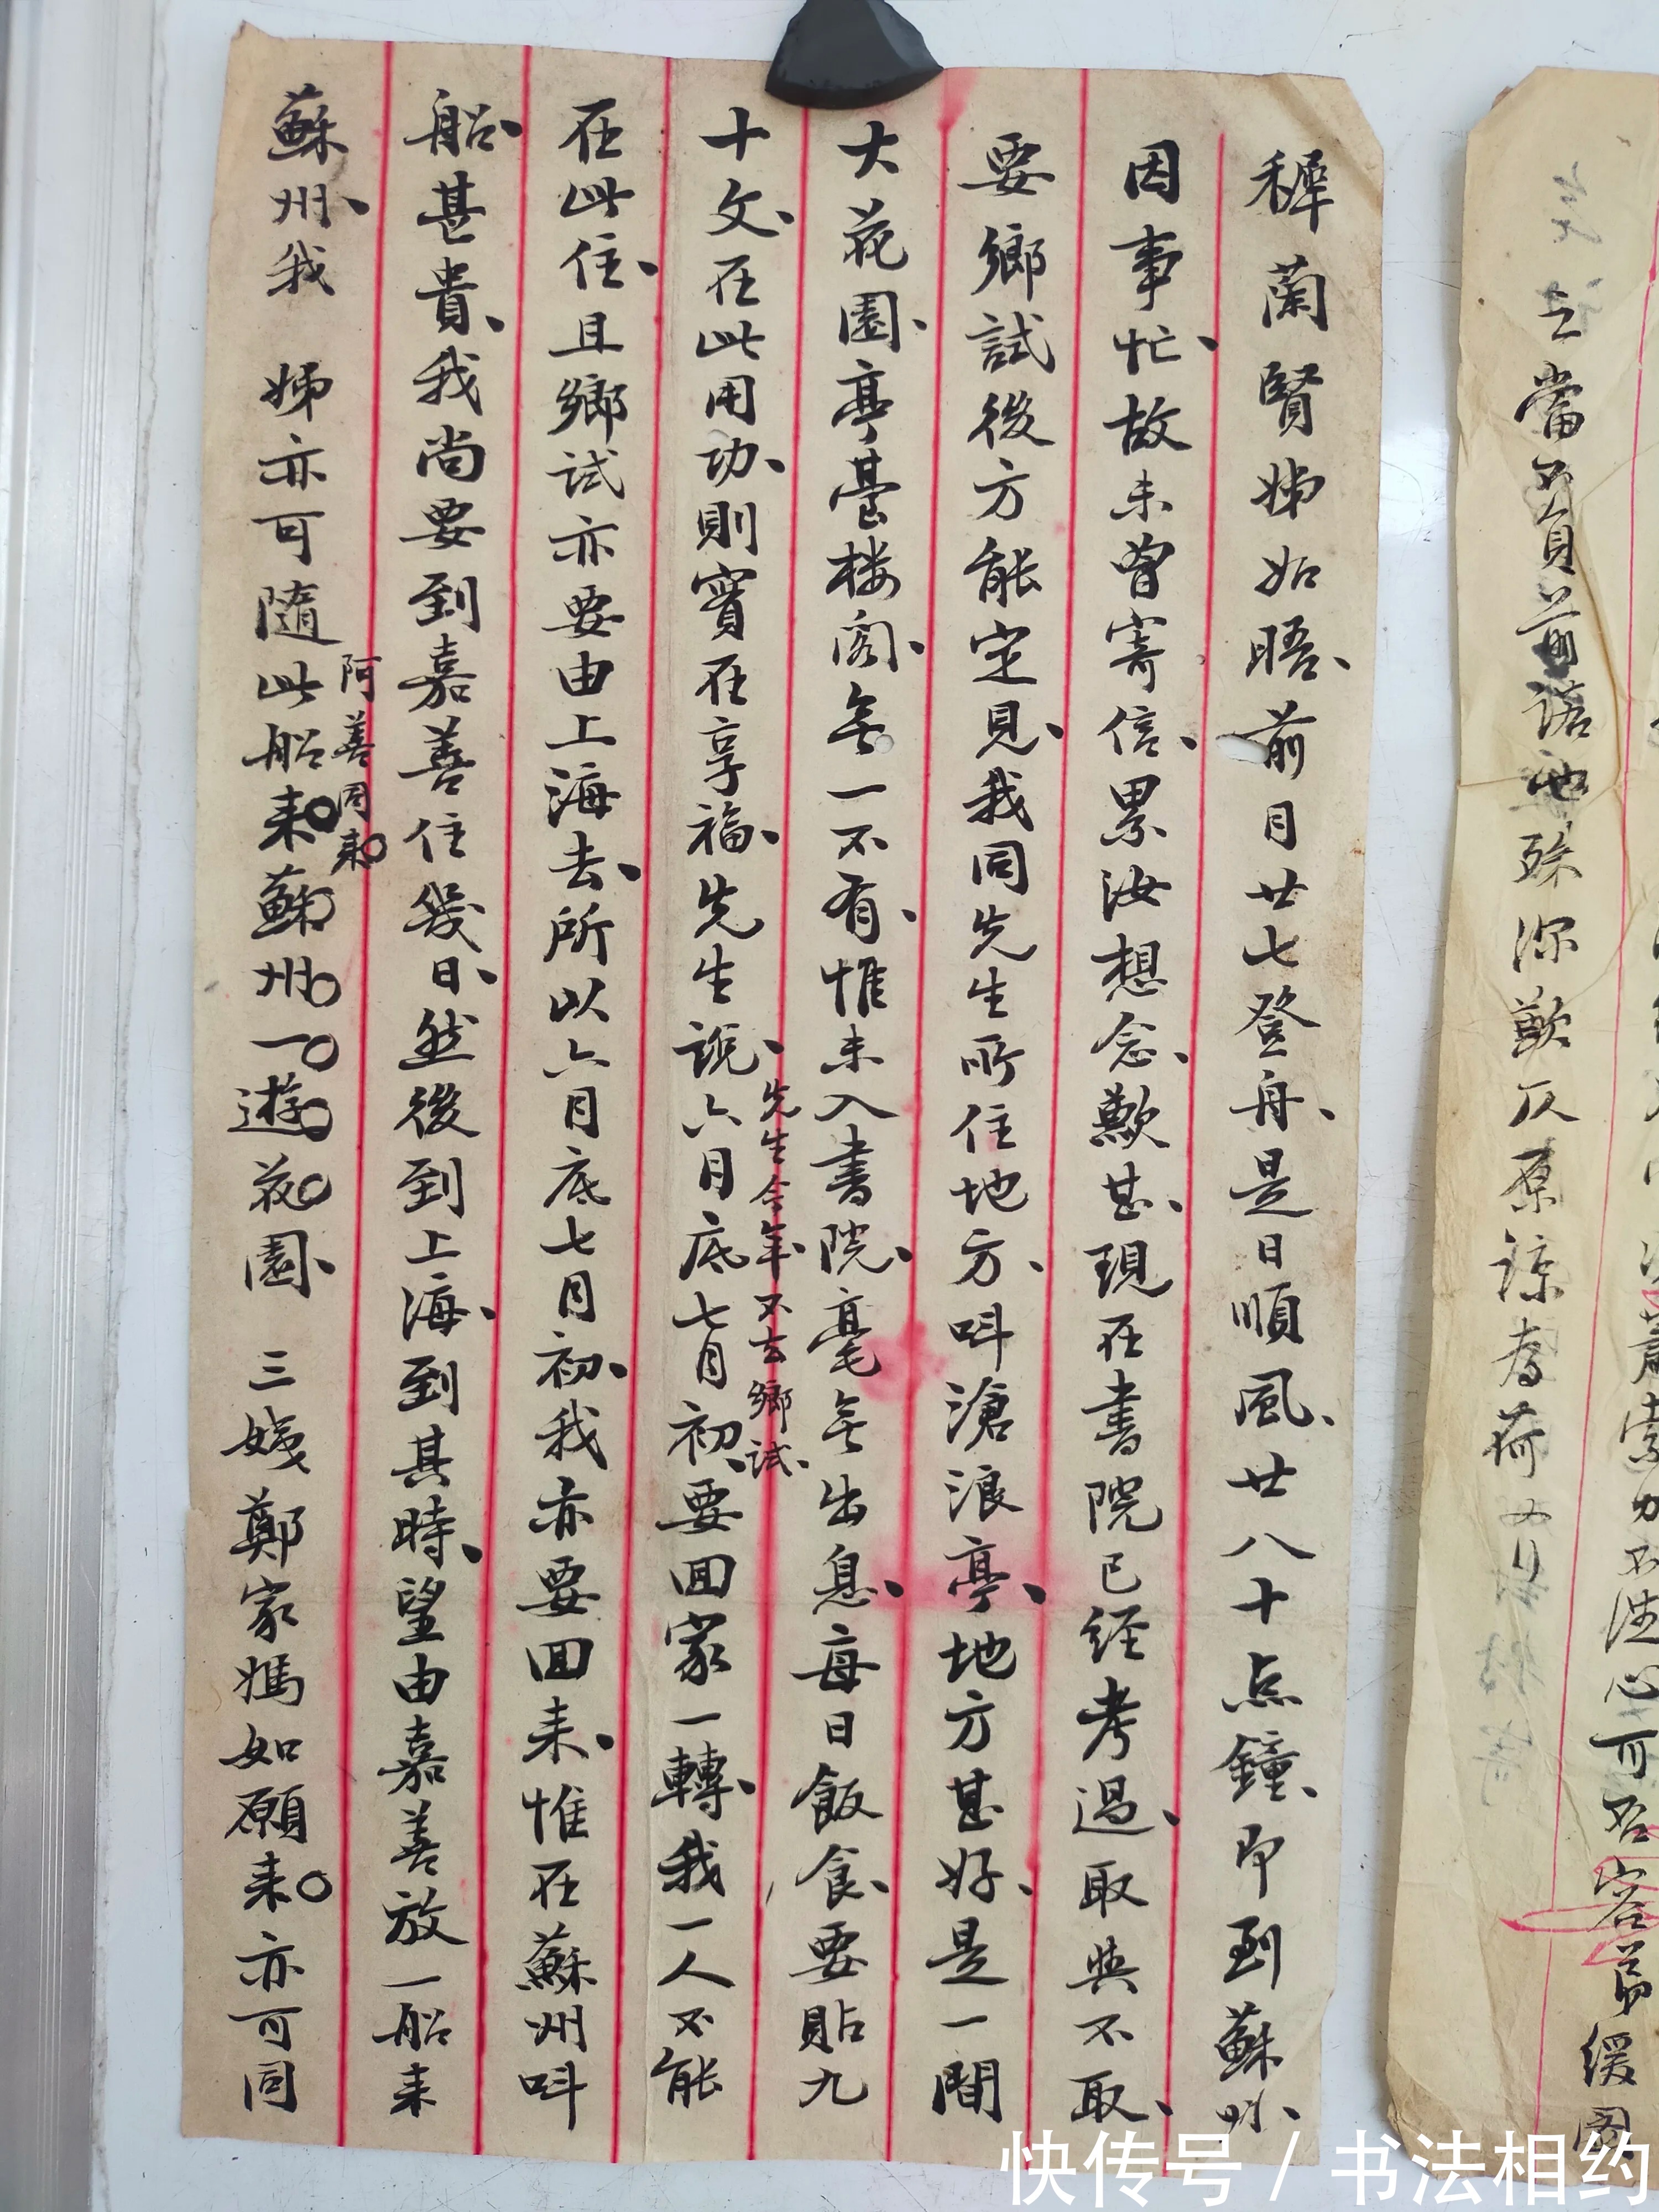 穉蘭賢姊如晤、前月廿七登舟、是日順風、廿八十点鐘、即到蘇州、
因事忙、故未曾寄信、累汝想念、歉甚、現在書院已經考過、取與不取、
要鄉試後方能定見、我同先生所住地方、叫滄浪亭、地方甚好、是一間
大花園、亭臺楼阁、無一不有、惟未入書院、毫無出息、每日飯食、要貼九
十文、在此用功、則實在享福、先生説、六月底七月初、要回家一轉、我一人不能
先生今年不去鄉試、
在此住、且鄉试亦要由上海去、所以六月底七月初、我亦要回来、惟在蘇州叫
船、甚貴、我尚要到嘉善住幾日、然後到上海、到其時、望由嘉善放一船来
蘇州、我 姊亦可隨此船来蘇州一遊花園、 三姨鄭家媽如願来。亦可同
阿善同来
上當負前諾也殊深歉仄原諒為荷
快传号 / 书法相约